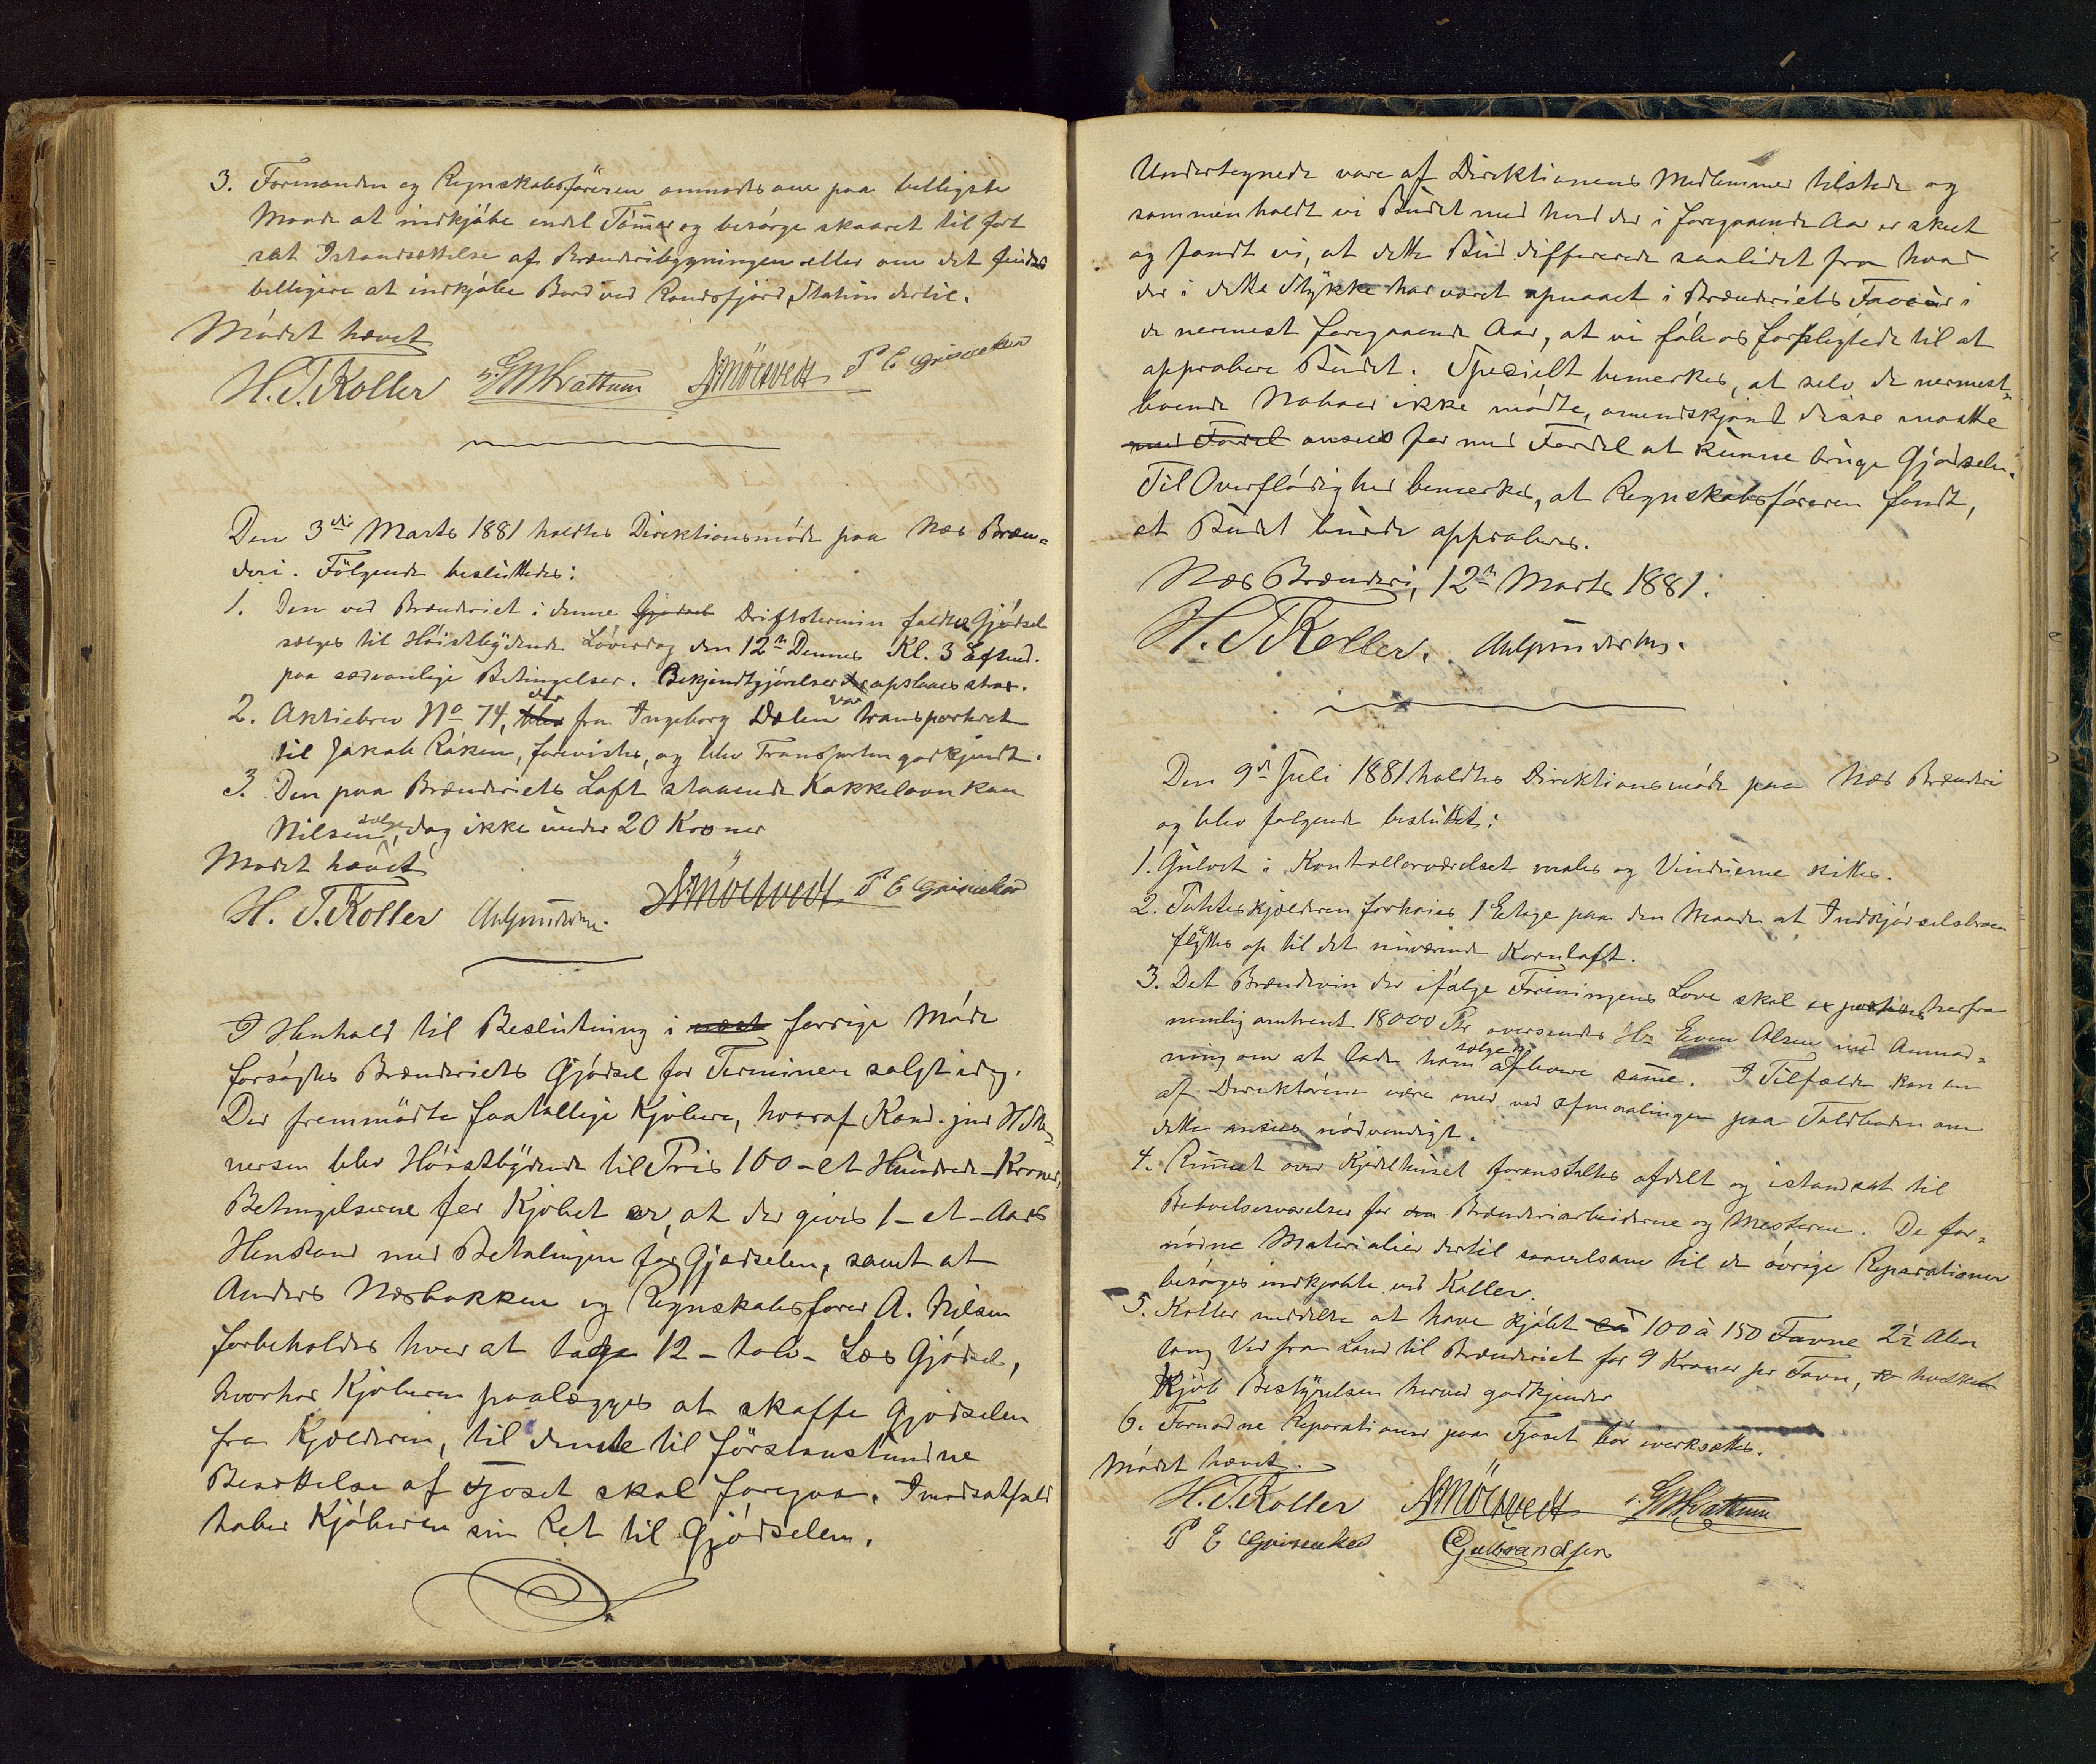 3. Formanden og Regnskabsføreren anmodes om paa billigste
Maade at indkjøbe endel Tømer og besørge skaaret til fort
sat Istandsættelse af Brænderibygningen eller om det findes
billigere at indkjøbe Bord ved Randsfjord Station dertil.
Mødet hævet
H. T. Koller G M Hvattum P E Grinaker
Den 3die Marts 1881 holdtes Direktionsmøde paa Næs Bræn=
deri. Følgende besluttedes:
1. Den ved Brænderiet i denne Gjødsel Driftstermin faldte Gjødsel
sælges til Høistbydende Løverdag den 12te Dennes Kl. 3 Efterm.
paa sædvanlige Betingelser. Bekjendtgjørelser opslaaes strax.
2. Aktiebrev No 74, blev der fra Ingeborg Dælen var transporteret
til Jakob Røken, forevistes, og blev Transporten godkjendt.
3. Den paa Brænderiets Loft staaende Kakkelovn kan
Nilsen sælge, dog ikke under 20 Kroner
Mødet hævet
H. T. Koller P E Grinaker
I Henhold til Beslutning i næst forrige Møde
forsøgtes Brænderiets Gjødsel for Terminen solgt idag.
Der fremmødte faatallige Kjøbere, hvoraf Kand. jur H M
nersen blev Høistbydende til Pris 100 - et Hundrede - Kroner,
Betingelserne for Kjøbet er, at der gives 1 - et - Aars
Henstand med Betalingen for Gjødselen, samt at
Anders Næsbakken og Regnskabsfører A. Nilsen
forbeholdes hver at tage 12 - tolv - Læs Gjødsel,
hvorhos Kjøberen paalægges at skaffe Gjødselen
fra Kjælderen, til denne til førstanstundne
Besættelse af Fjøset skal foregaa. I modsat fald
taber Kjøberen sin Ret til Gjødselen.
Undertegnede vare af Direktionens Medlemmer tilstede og
sammenholdt vi Budet med hvad der i foregaaende Aar er skeet
og fandt vi, at dette Bud differerede saalidet fra hvad
der i dette Stykke har været opnaaet i Brænderiets Faveur i
de nermest foregaaende Aar, at vi føle os forpligtede til at
approbere Budet. Specielt bemerkes, at selv de nermest
boende Naboer ikke mødte, omendskjønt disse maatte
med Fordel ansees for med Fordel at kunne bruge Gjødselen.
Til Overflødighed bemerkes, at Regnskabsføreren fandt,
at Budet burde approberes.
Næs Brænderi, 12te Marts 1881.
H. T Koller.
Den 9de Juli 1881 holdtes Direktionsmøde paa Næs Brænderi
og blev følgende besluttet:
1. Gulvet i Kontrollørværelset males og Vinduerne kittes.
2. Potteskjælderen forhøies 1 Etage paa den Maade at Indkjørselsbroen
flyttes op til det nuværende Kornloft.
3. Det Brændevin der ifølge Foreningens Love skal exporteres herfra
nemlig omtrent 18000 Ptr oversendes Hr Even Olsen med Anmod=
ning om at lade ham sælge og afhovne samme. I Tilfælde kan en
af Direktørene være med ved Afmaalingen paa Toldboden om
dette ansees nødvendigt.
4. Rummet over Kjedelhuset foranstaltes afdelt og istandsat til
Beboelsesværelser for den Brænderiarbeiderne og Mesteren. De for=
nødne Materialier dertil saavelsom til de øvrige Reparationer
besørges indkjøbte ved Koller.
5. Koller meddelte at have kjøbt ca 100 à 150 Favne 2½ Alen
lang Ved fra Land til Brænderiet for 9 Kroner per Favn, hvilket
Kjøb Bestyrelsen herved godkjender
6. Fornødne Reparationer paa Fjøset bør iverksættes.
Mødet hævet.
H. T. Koller G M Hvattum
P E Grinaker Gulbrandsen